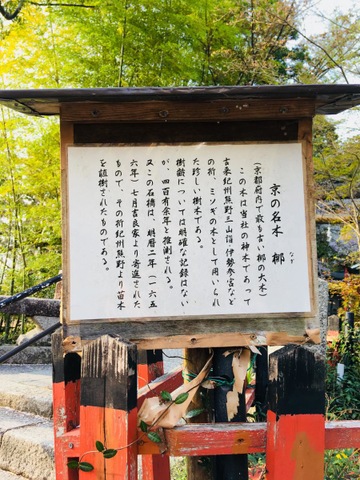 京の名木　梛
なぎ
（京都府内で最も古い梛の大木）
この木は当社の神木であって
古来紀州熊野三山詣・伊勢参宮など
の折、ミソギの木として用いられ
た珍しい樹木である。
樹齢については明確な記録はない
が、四百有余年と推測される。
又この石橋は、明暦二年（一六五
六年）七月吉良家より寄進された
もので、その折紀州熊野より苗木
を植樹されたものである。